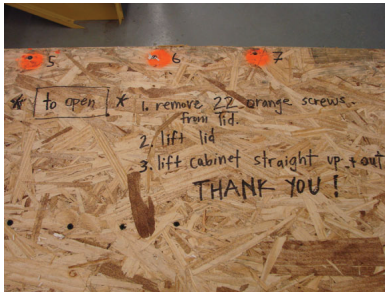 5 6 7
* to open *
1. remove 22 orange screws.
from lid.
2. lift lid
3. lift cabinet straight up + out
THANK YOU!